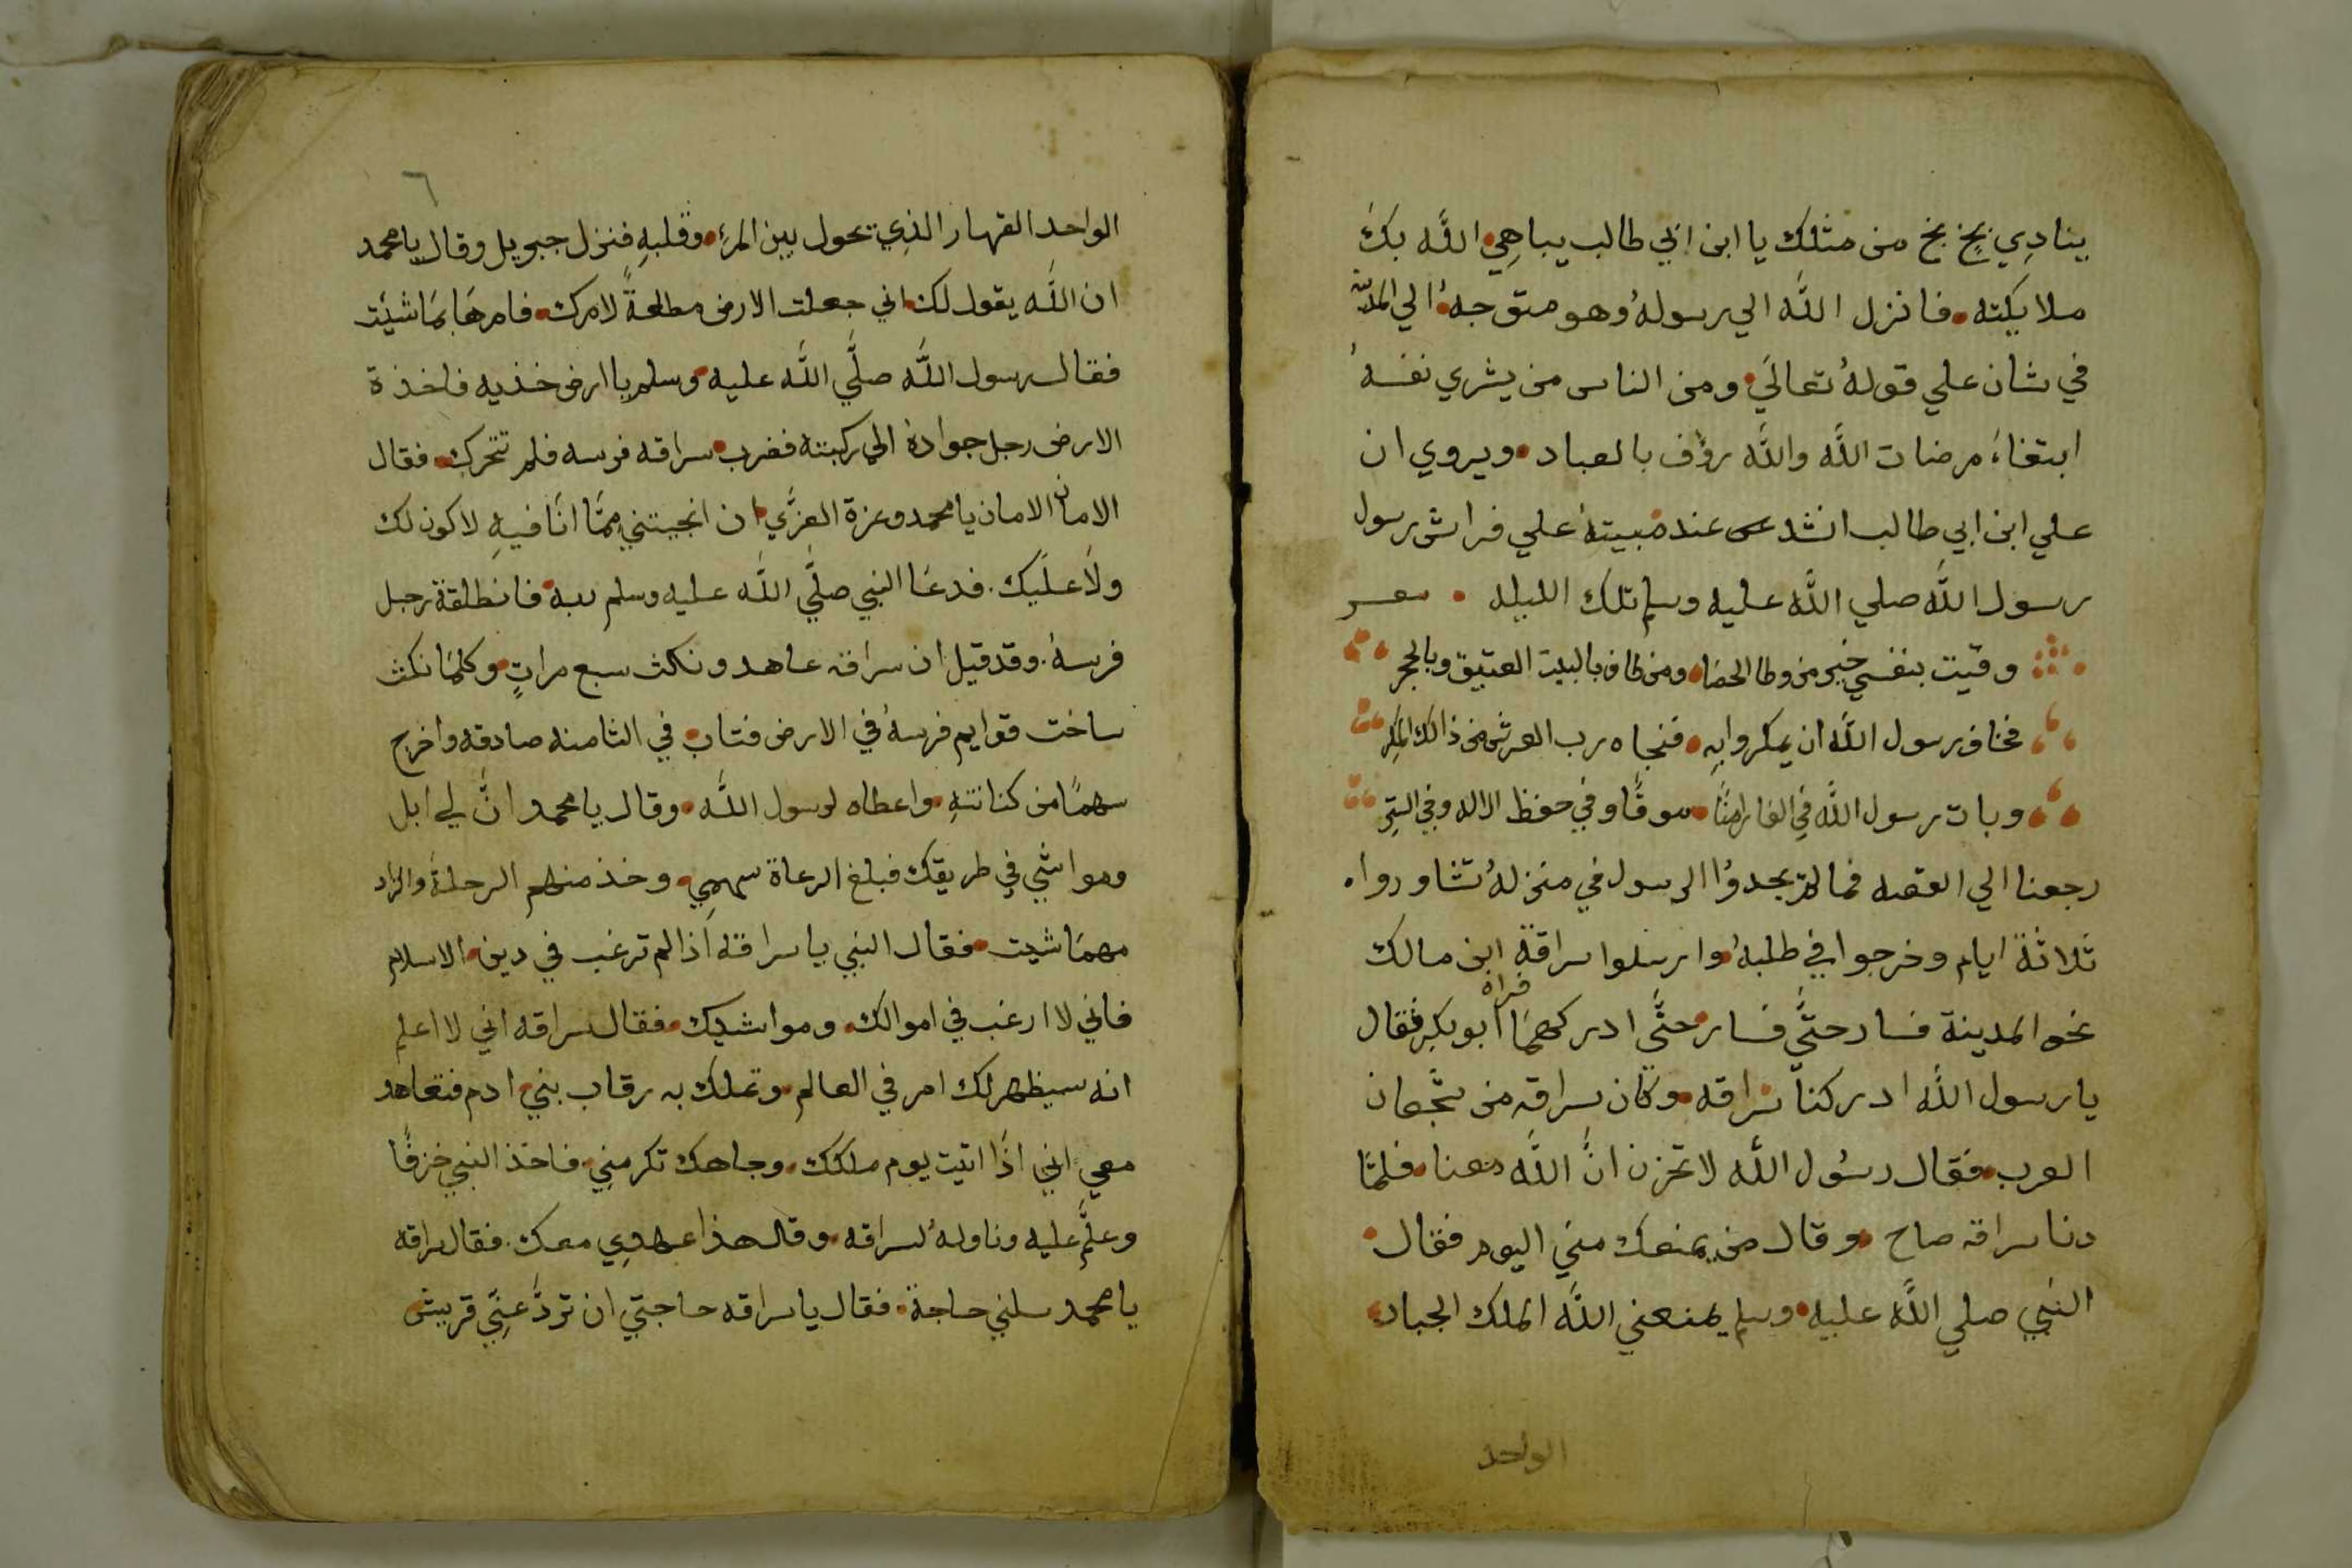 ينادِي بخٍ بخ من مثلك يا ابن ابي طالب يباهِي الله بك
ملايكته فانزل الله الي رسولهُ وهو متوجهُ الي المدينة
في شان علي قولهُ تعالَي ومن الناس من يشري نفسهُ
ابتغاءَ مرضات الله والله رؤف بالعباد ويروي ان
علي ابن ابي طالب انشد عند مبيتهُ علي فراش رسول
رسول الله صلي الله عليه وسلم تلك الليله شعر
وقيت بنفسي خير من وطا الحصَا ومن طاف بالبيت العتيق وبالحجر
فخاف رسول الله ان يمكروا بِهِ فنجاه رب العرش من ذالك المكِر
وبات رسول الله فِي الغار امنًا موقًا وفي حفظ الاله وفي الستِر
رجعنا الي القصه فما لم يجدوُا الرسول في منزلهُ تشاوروا
ثلاثة ايام وخرجوا في طلبهُ وارسلوا سراقةِ ابن مالك
نحو المدينة فسار حتَّي فسار حتَّي ادركهمَا فراه ابو بكر فقال
يا رسول الله ادركنا سراقه وكان سراقه من شجعان
العرب فقال رسُول الله لا تحزن انَّ الله معنا فلمَّا
دنا سراقه صاح وقال من يمنعك مني اليوم فقال
النبي صلي الله عليه وسلم يمنعني الله الملك الجبار
الواحد
٦
الواحد القهار الذِي يحول بين المرءِ وقلبهِ فنزل جبريل وقال يا محمد
ان الله يقول لك اني جعلت الارض مطاعةً لامرك فامرهَا بمَا شيَت
فقال رسول الله صلَّي الله عليه وسلم يا ارض خذيه فاخذة
الارض رجل جوادهُ الي ركبته فضرب سراقه فرسه فلم تتحرك فقال
الامان الامان يا محمد وعزة العزَّي ان انجيتني ممَّا انَا فيهِ لاكون لك
ولاَ علَيك. فدعَا النبي صلَّي الله عليه وسلم ربه فانطلقة رجل
فرسهُ. وقد قيل ان سراقه عاهد ونكث سبع مراتٍ وكلمَا نكث
ساخت قوايم فرسهُ في الارض فتاب في الثامنه صادقه واخرج
سهمًا من كنانتهِ واعطاه لرسول الله وقال يا محمد انَّ لي ابل
ومواشي فِي طريقك فبلغ الرعاة سهمِي وخذ منهم الرحلة والزاد
مهمَا شيت فقال النبي يا سراقه اذا لم ترغب في دين الاسلام
فاني لا ارغب في اموالك ومواشيك فقال سراقه اني لا اعلم
انه سيظهر لك امر في العالم وتملك به رقاب بني ادم فتعاهد
معي اني اذَا اتيت يوم ملكك وجاهك تكرمنِي فاخذ النبي خزفًا
وعلَّم عليه وناولهُ لسراقه وقال هذا عهدِي معك. فقال سراقه
يا محمد سلني حاجة فقال يا سراقه حاجتي ان تردَّ عنِّي قريش